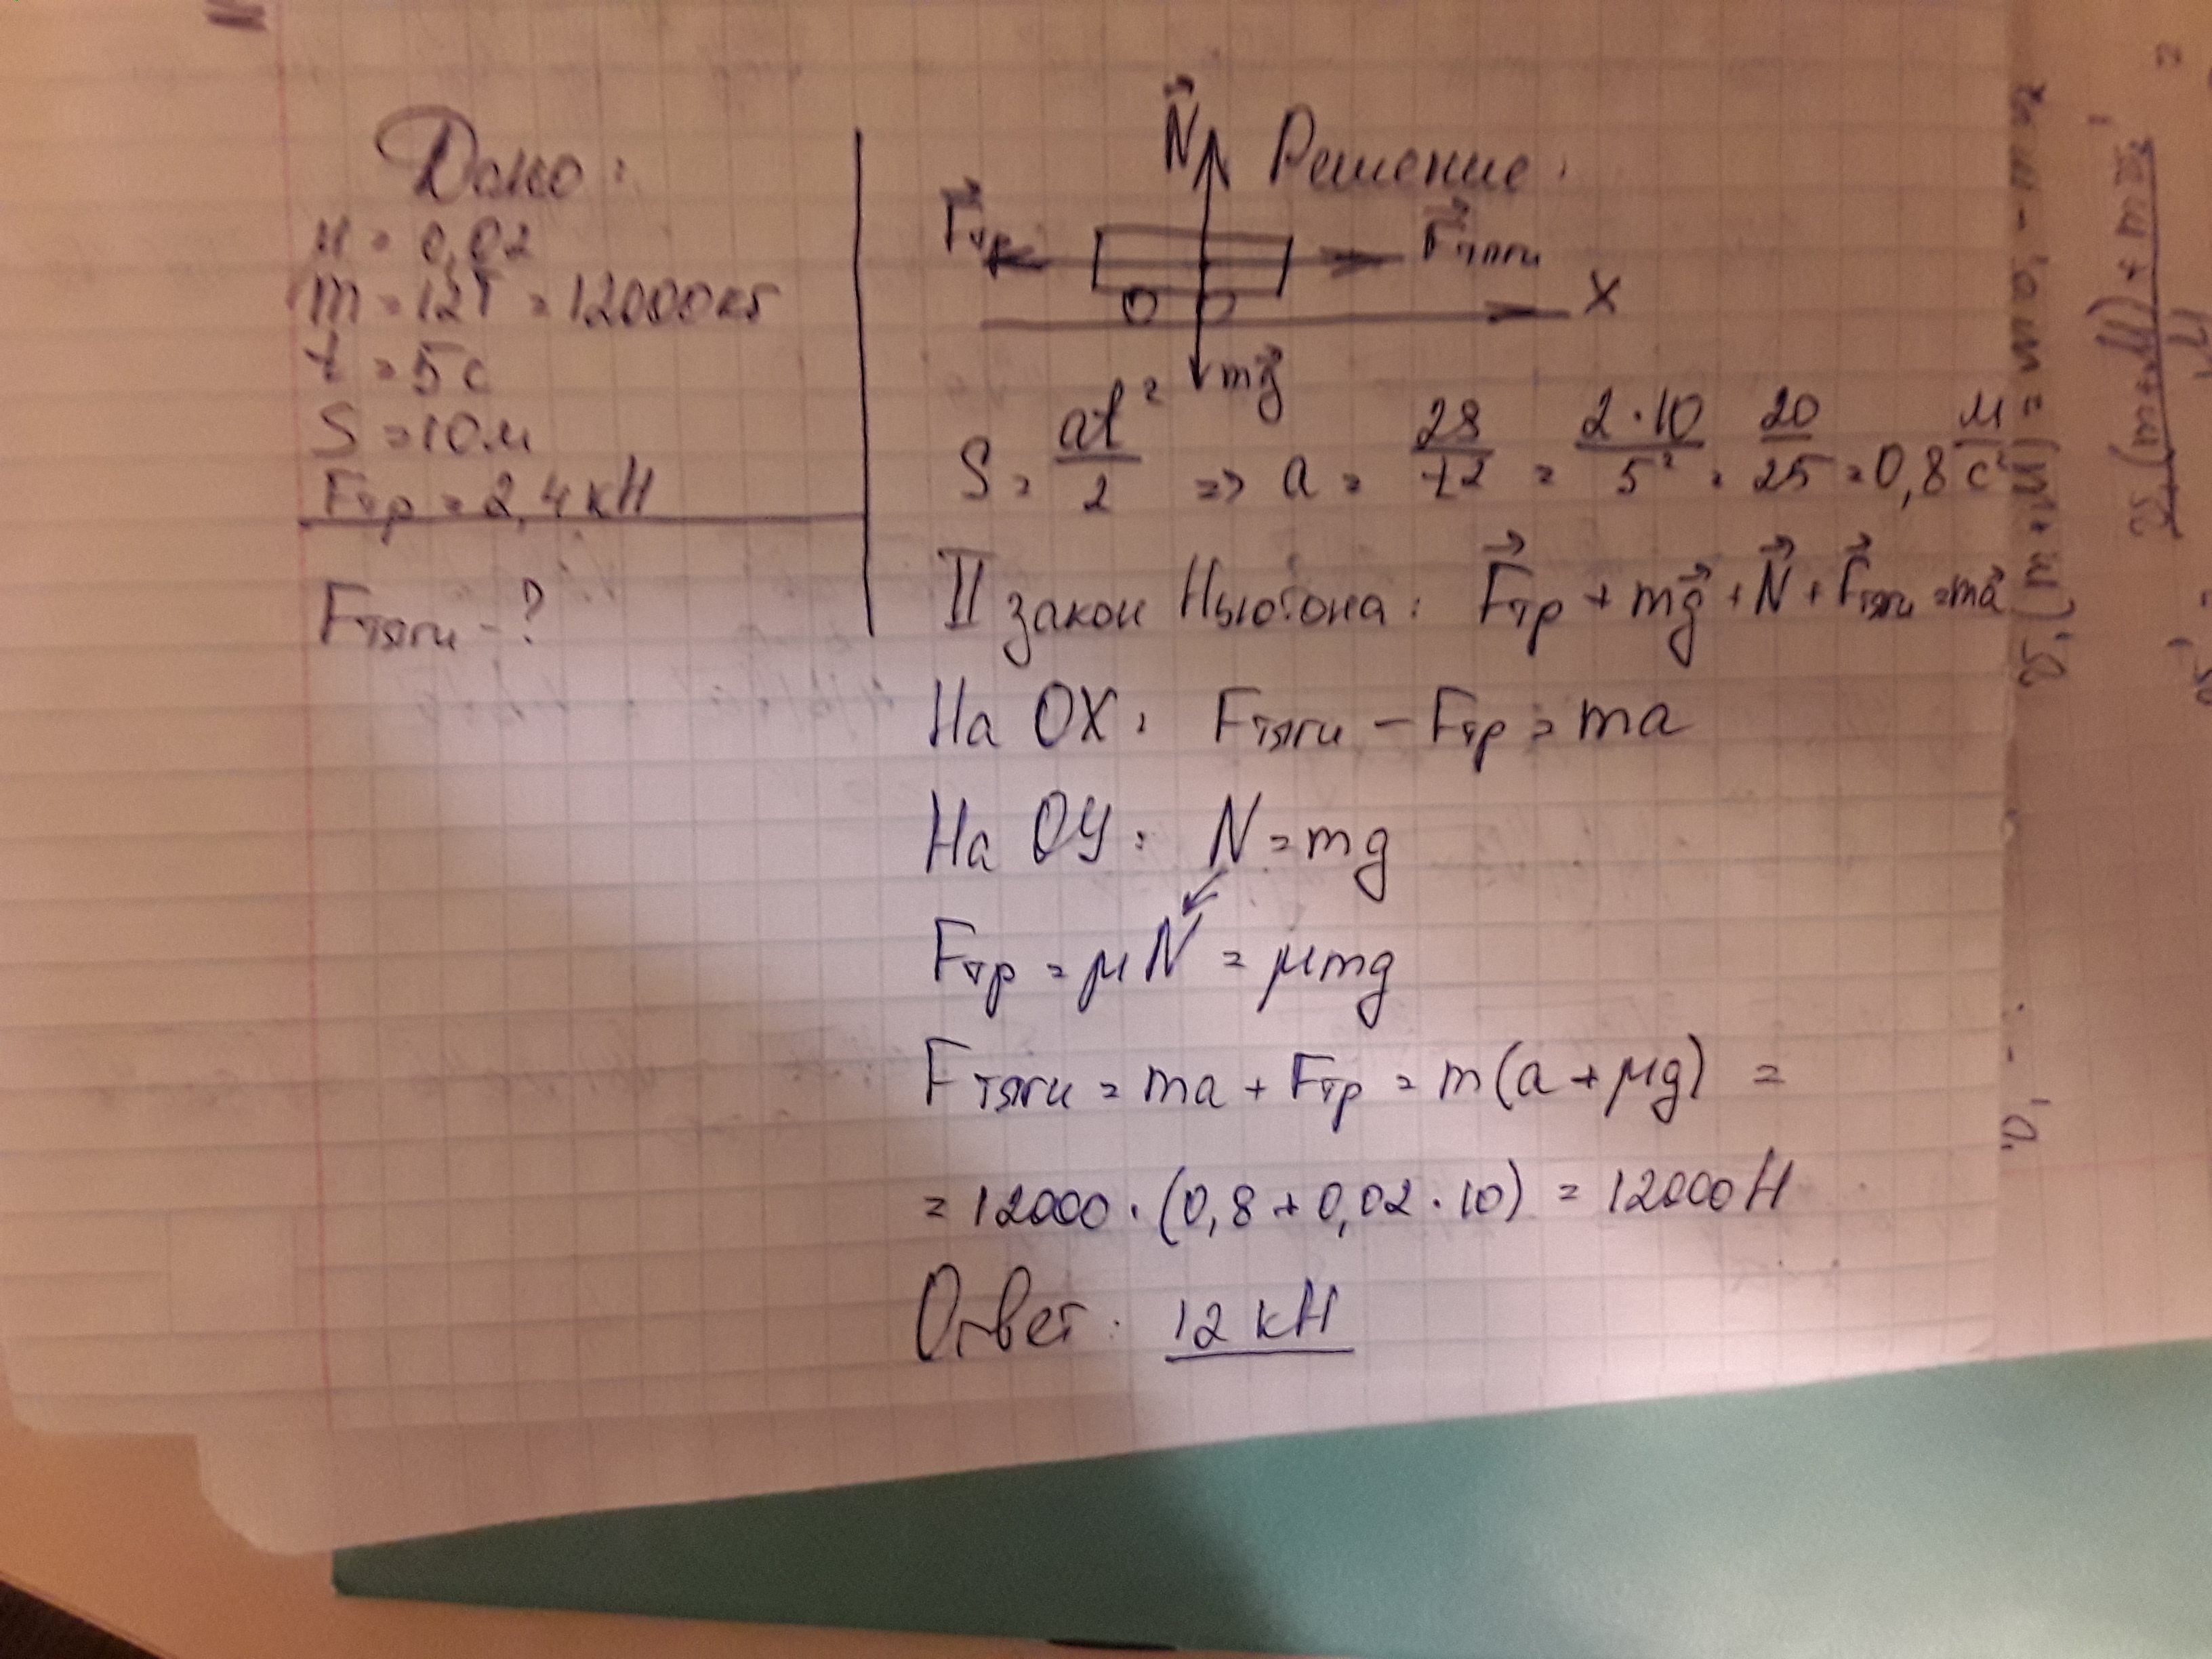 Дано:
μ = 0,02
m = 12т = 12000кг
t = 5с
S = 10м
Fтр = 2,4кН
Fтяги - ?
Решение:
N
Fтр
Fтяги
X
mg
S = at²/2 => a = 2S/t² = 2·10/5² = 20/25 = 0,8 м/с²
II закон Ньютона: Fтр + mg + N + Fтяги = ma
На OX: Fтяги - Fтр = ma
На OY: N = mg
Fтр = μN = μmg
Fтяги = ma + Fтр = m(a + μg) =
= 12000·(0,8 + 0,02·10) = 12000Н
Ответ: 12 кН